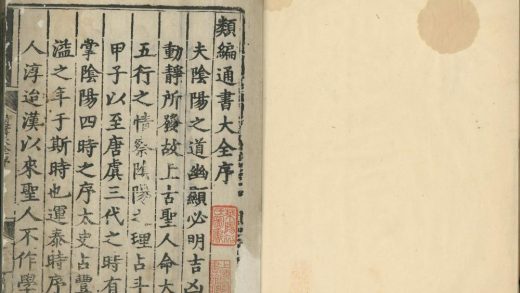 類編通書大全序
夫陰陽之道幽顯必明吉凶
動靜所發故上古聖人命大
五行之情察陰陽之理占斗
甲子以至唐虞三代之時有
掌陰陽四時之序太史占豐
溢之年于斯時也運泰時序
人淳迨漢以來聖人不作學